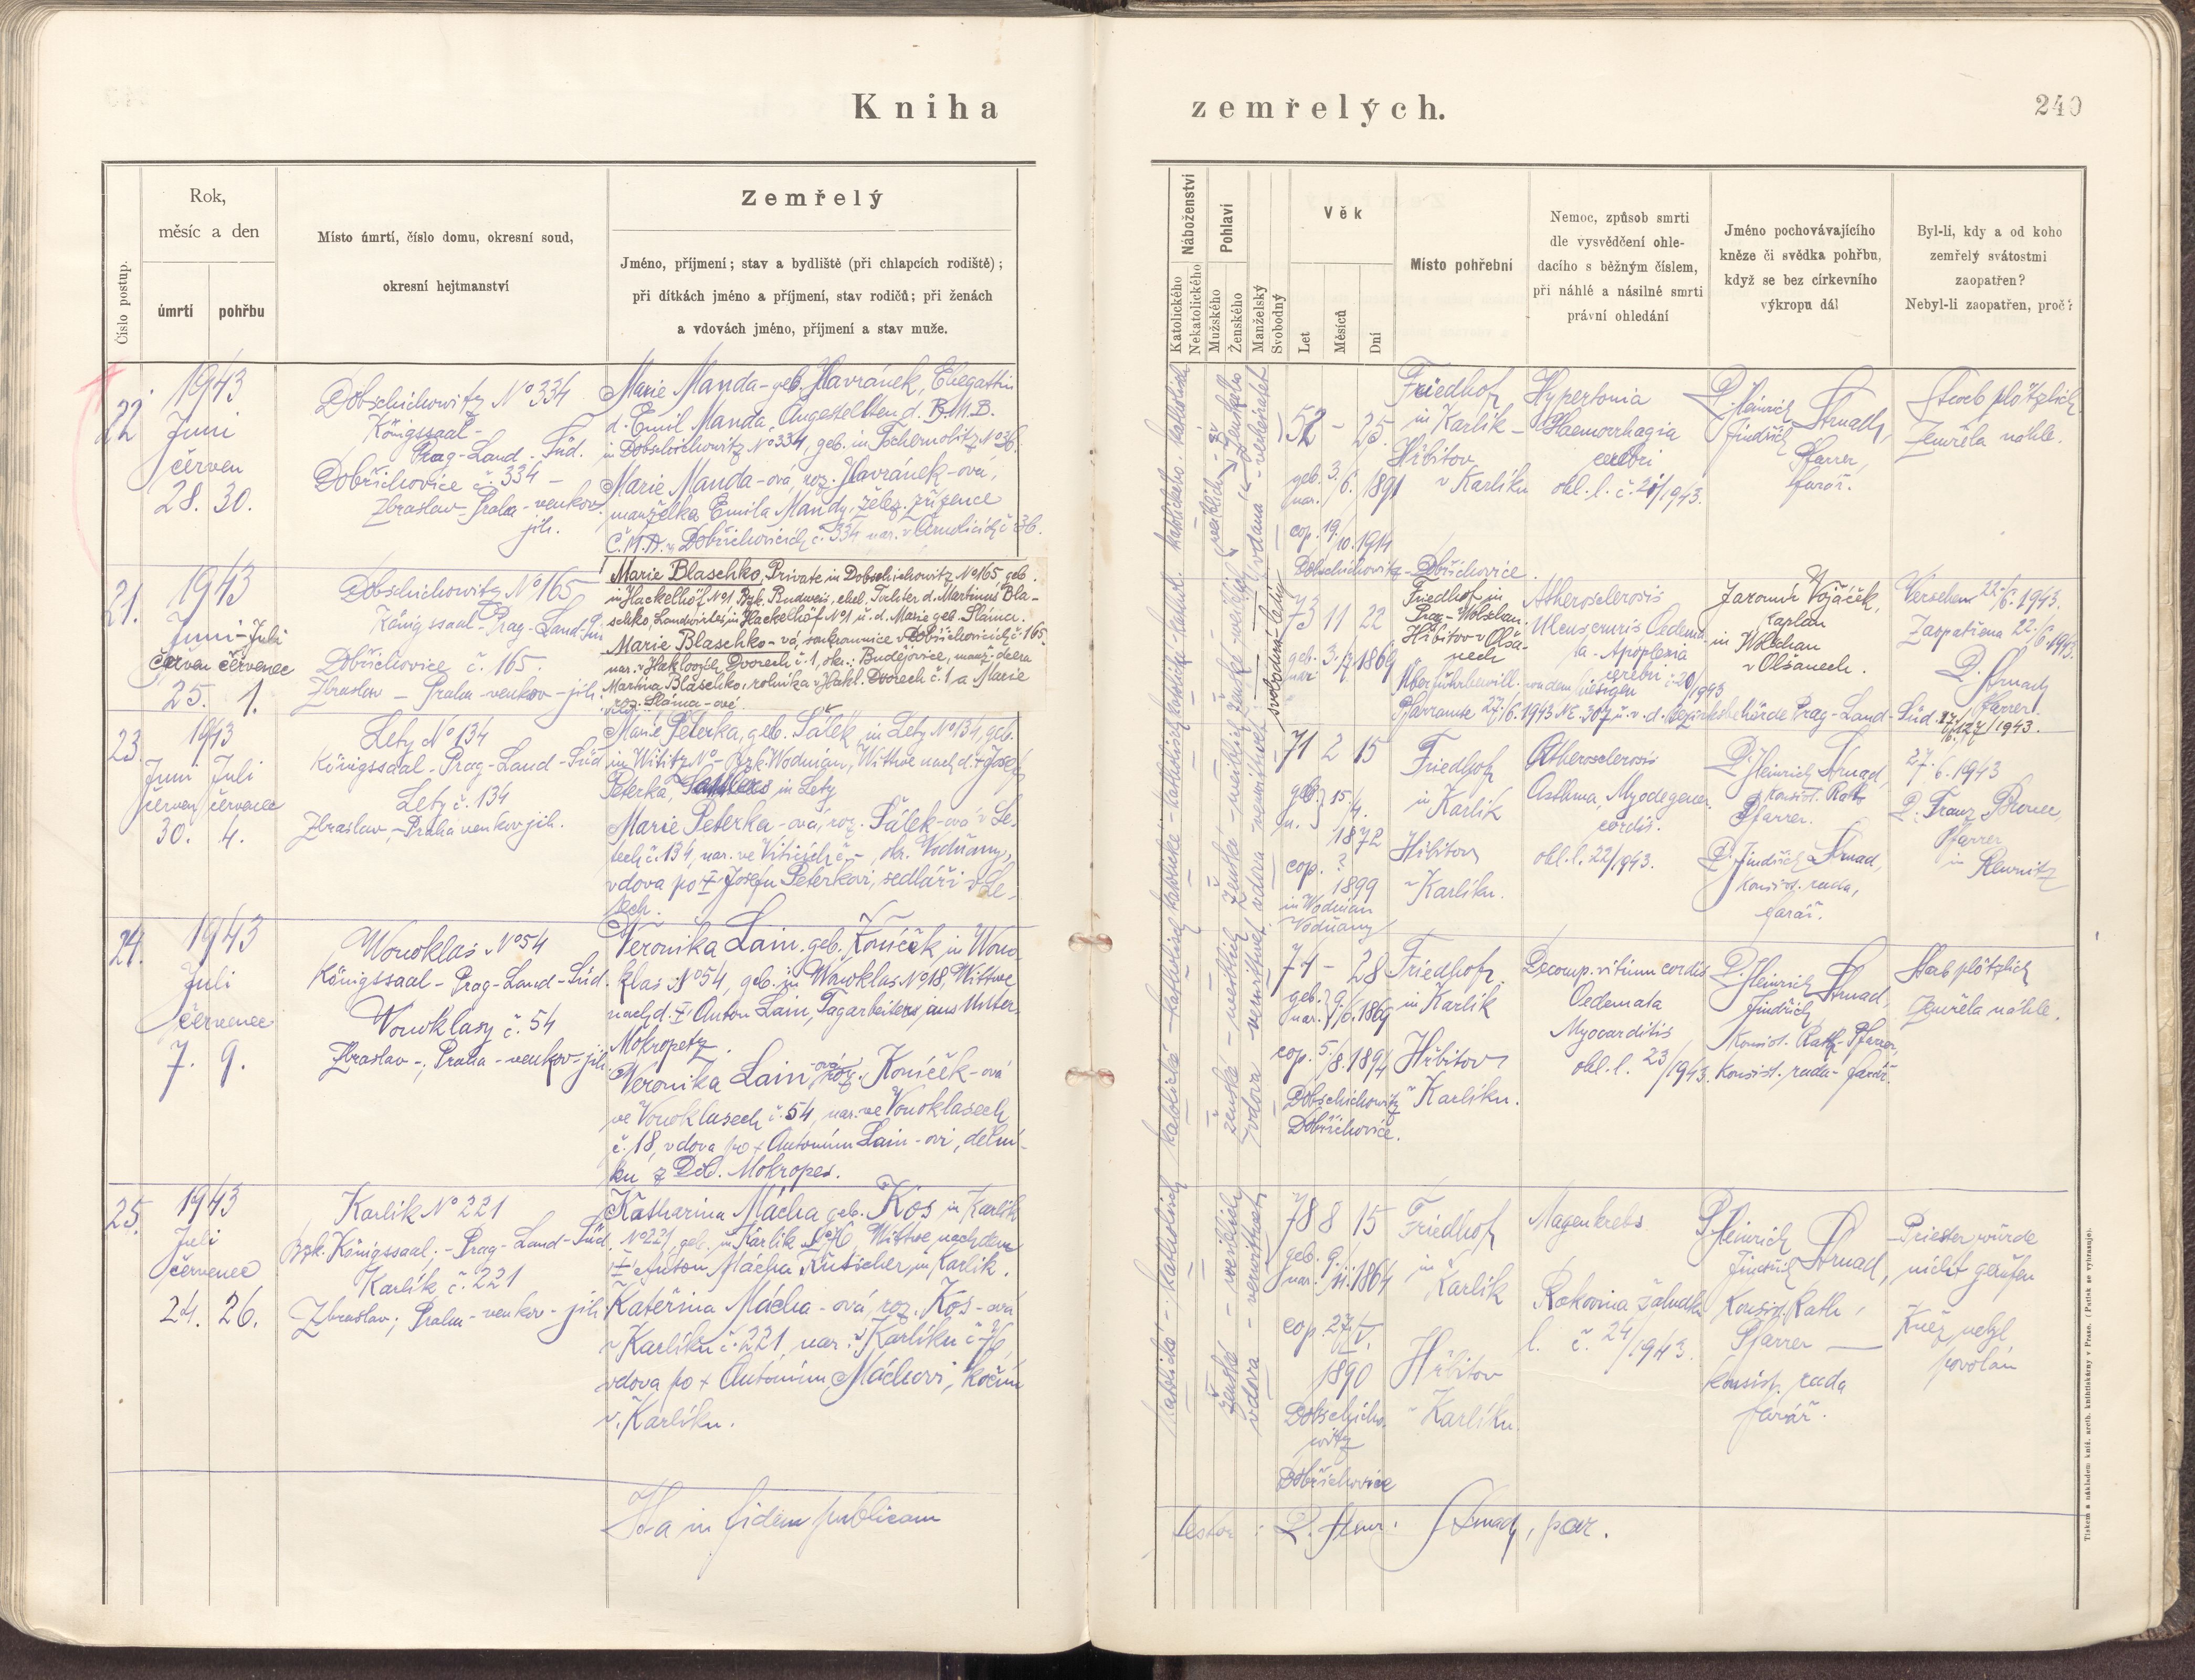 Kniha
zemřelých.
240
Číslo postup.
Rok,
měsíc a den
úmrtí
pohřbu
Místo úmrtí, číslo domu, okresní soud,
okresní hejtmanství
Zemřelý
Jméno, příjmení; stav a bydliště (při chlapcích rodiště);
při dítkách jméno a příjmení, stav rodičů; při ženách
a vdovách jméno, příjmení a stav muže.
Náboženství
Katolického
Nekatolického
Pohlaví
Mužského
Ženského
Manželský
Svobodný
Věk
Let
Měsíců
Dní
Místo pohřební
Nemoc, způsob smrti
dle vysvědčení ohle-
dacího s běžným číslem,
při náhlé a násilné smrti
právní ohledání
Jméno pochovávajícího
kněze či svědka pohřbu,
když se bez církevního
výkropu dál
Byl-li, kdy a od koho
zemřelý svátostmi
zaopatřen?
Nebyl-li zaopatřen, proč?
22
1943
Juni
červen
28. 30.
Dobschichowitz No 334
Königssaal -
Prag-Land-Süd.
Dobřichovice č. 334 -
Zbraslav - Praha - venkov
jih.
Marie Manda - geb. Havránek, Ehegattin
d. Emil Manda, Angestellten d. B.M.B.
in Dobschichowitz No 334, geb. in Tschernolitz No 36.
Marie Manda-ová, roz. Havránek-ová,
manželka Emila Mandy, želez. zřízence
Č.M.D. v Dobřichovicích č. 334 nar. v Černolicích č 36.
52 - 25
geb. 3./6. 1891
nar.
cop. 19./10. 1914
Dobschichowitz - Dobřichovice.
Friedhof
in Karlik -
Hřbitov
v Karlíku
Hypertonia
Haemorrhagia
cerebri
ohl. l. č. 21/1943.
P. Heinrich
Jindřich Strnad,
Pfarrer,
farář.
Starb plötzlich
Zemřela náhle.
21.
1943
Juni - Juli
Červen červenec
25. 1.
Dobschichowitz No 165
Königssaal - Prag-Land-Süd
Dobřichovice č. 165.
Zbraslav - Praha - venkov - jih.
Marie Blaschko, Private in Dobschichowitz No 165, geb.
in Hackelhöf No 1 Bzk. Budweis, ehel. Tochter d. Martinus Bla-
schko, Landwirtes in Hackelhöf No 1 u. d. Marie geb. Sláma.
Marie Blaschko-vá, soukromnice v Dobřichovicích č. 165
nar. v Haklových Dvorech č. 1, okr.: Budějovice, manž. dcera
Martina Blaschko, rolníka v Hakl. Dvorech č. 1 a Marie
roz. Sláma-ové
svobodná - ledig
73 11 22
geb. 3./7. 1869
nar.
Friedhof in
Prag-Wolschan.
Hřbitov v Olša-
nech
Atherosclerosis
Ulcus cruris Oedema-
ta - Apoplexia
cerebri č 20/1943
Pfarramte 27/6. 1943 No. 307 u. v. d. Bezirksbehörde Prag-Land-Süd.
Jaromír Vojáček,
Kaplan
in Wolschan
v Olšanech.
Versehen 22/6. 1943.
Zaopatřena 22./6. 1943.
P. Strnad
Pfarrer.
23.
1943
Juni Juli
červen červenec
30. 4.
Lety No 134
Königssaal - Prag-Land-Süd
Lety č. 134
Zbraslav, - Praha venkov jih.
Marie Peterka, geb. Šálek, in Lety No 134, geb.
in Wititz No - Bzk. Wodnian, Witwe nach d. + Josef
Peterka, Sattlers in Lety
Marie Peterka-ová, roz. Šálek-ová v Le-
tech č. 134, nar. ve Viticích č. -, okr. Vodňany,
vdova po + Josefu Peterkovi, sedláři v Le-
tech.
71 2 15
geb. 15/4.
n.
1872
cop. ?
1899
in Wodnian
Vodňany
Friedhof
in Karlik
Hřbitov
v Karlíku.
Atherosclerosis
Asthma, Myodegener.
cordis.
ohl. l. 22/1943.
P. Heinrich Strnad,
Konsist. Rath
Pfarrer.
P. Jindřich Strnad,
Konsist. rada,
farář.
27./6. 1943
P. Franz
Pfarrer
in Rewnitz
24.
1943
Juli
červenec
7. 9.
Wonoklas No 54
Königssaal - Prag-Land-Süd.
Vonoklasy č. 54
Zbraslav -, Praha - venkov - jih
Veronika Lain, geb. Koníček, in Wono-
klas No 54, geb. in Wonoklas No 18, Wittwe
nach d. + Anton Lain, Tagarbeiters, aus Unter-
Mokropetz.
Veronika Lain-ová, roz. Koníček-ová
ve Vonoklasech č. 54, nar. ve Vonoklasech
č. 18, vdova po + Antonínu Lain-ovi, dělní-
ku z Dol. Mokropes.
74 - 28
geb. 9./6. 1869
nar.
cop. 5./8. 1894
Dobschichowitz
Dobřichovice.
Friedhof
in Karlik
Hřbitov
v Karlíku.
Decomp. vitium cordis
Oedemata
Myocarditis
ohl. l. 23/1943.
P. Heinrich Strnad,
Jindřich
Konsist. Rath - Pfarrer,
Konsist. rada - farář.
Starb plötzlich
Zemřela náhle.
25.
1943
Juli
červenec
24. 26.
Karlik No 221
Bzk. Königssaal; - Prag-Land-Süd.
Karlík č. 221
Zbraslav; Praha - venkov - jih
Katharina Mácha geb. Kos in Karlik
No 221, geb. in Karlik No 76, Wittwe nach dem
+ Anton Mácha Kutscher, in Karlik.
Kateřina Mácha-ová, roz. Kos-ová
v Karlíku č. 221, nar. v Karlíku č. 76,
vdova po + Antonínu Máchovi, kočím
v Karlíku.
78 8 15
geb. 9./11. 1864
nar.
cop. 27/V.
1890
Dobschicho-
witz
Dobřichovice
Friedhof
in
Karlik
Hřbitov
v Karlíku.
Magenkrebs
Rakovina žaludku
l. č. 24/1943.
P. Heinrich
Jindřich Strnad,
Konsist. Rath,
Pfarrer -
konsist. rada
farář.
Priester würde
nicht gerufen
Kněz nebyl
povolán
Ita in fidem publicam
testor: P. Henr. Strnad, par.
Tiskem a nákladem kníž. arcib. knihtiskárny v Praze.